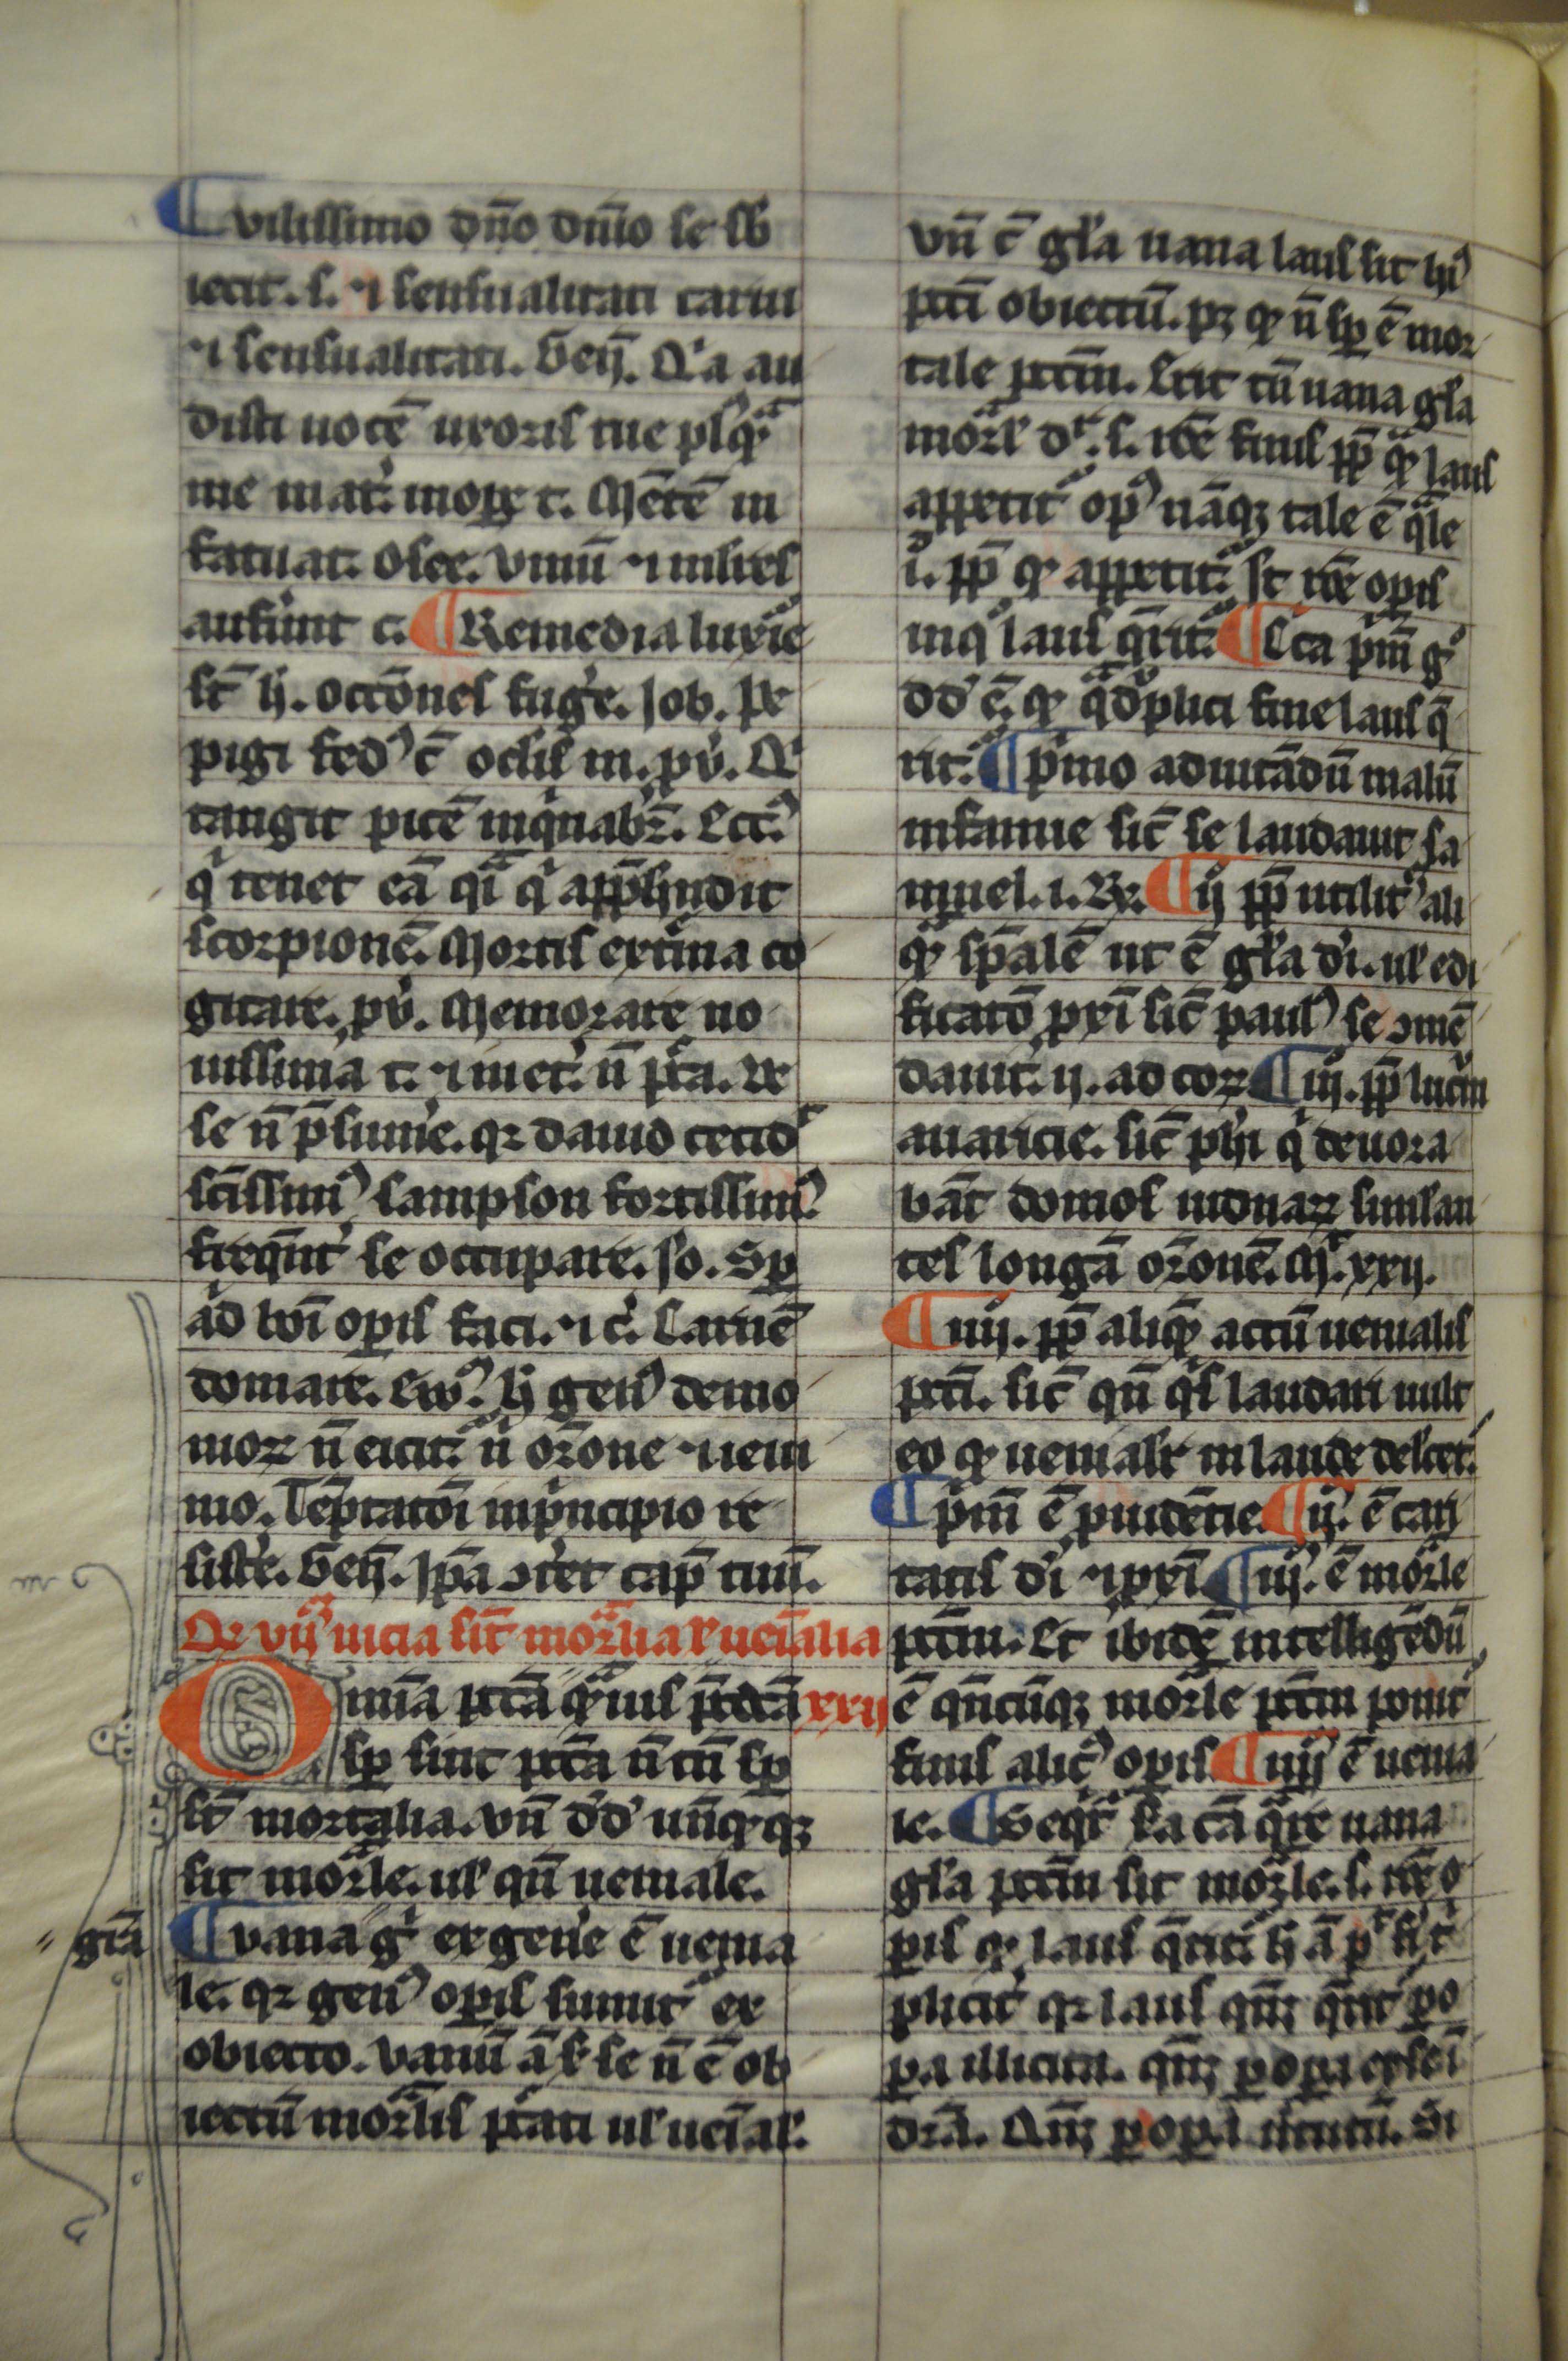 ¶ vilissimo dn̄o dn̄io se sb
iecit. s. ⁊ sensualitati carni
⁊ sensualitati. Geñ. Q'a au
disti uocē uxoris tue plꝰq̄
me mat'. t. Mētē in
fatuat. Osee. vinū ⁊ mlīres
auferūt c. ¶ Remedia luxⁱe
st̄ ħ. occōnes fug'e. Job. pe
pigi fedꝰ c̄ oclis m. pv̄. Qⁱ
tangit picē inqⁱnabr̄. Ecc̄.
qⁱ tenet eā qⁱ app̄hendit
scorpionē. Mortis extima co
gitare. pv̄. Memorare no
uissima t. ⁊ inet'. n̄ pc̄a. De
se n̄ p̄sum'e. qꝛ dauid cecid'
sc̄issimꝰ sampson fortissimꝰ
freqn̄t' se occupare. Jo. Sp̄
ad boī opis faci. ⁊ c'. Carnē
domare. Ewꝰ. ħ genꝰ demo
nioꝝ n̄ eicit' nⁱ or̄one ⁊ ieiu
nio. Tēptatōi in pⁱncipio re
sist'e. Geñ. Ip̄a ɔt'et cap̄ tuū.
Qꝛ vii uicia sūt mor̄lia ⁊ uēialia
Omīa pc̄ta p̄dc̄a xxii
sp̄ sint pc̄ta n̄ tn̄ sp̄
st̄ mortalia. vn̄ dd' un̄qꝙqꝫ
sit mor̄le. ul' qn̄ ueniale.
grā
¶ vana gⁱ ex gen'e ē uenia
le. qꝛ genꝰ opis sumit' ex
obiecto. vanū ā f' se n̄ ē ob
iectū mor̄lis pc̄ati ul' uēial'.
vn̄ c̄ gl'a uana laus sit hꝰ
pc̄ti obiectū. pꝫ ꝙ n̄ sp̄ ē mor
tale pc̄tm. Erit tn̄ uana gl'a
mor̄l' dr̄. s. rōe finis pp̄ quā laus
appetit' opꝰ nāqꝫ tale ē qˡe
i. pp̄ qꝙ appetit'. st' rōe opis
in qⁱ laus q̄rit'. ¶ Cca pⁱm gⁱ
dd' ē. ꝙ qⁱd'plici fine laus q̄
rit'. ¶ pⁱmo ad uitādū malū
infamie sic̄ se laudauit sa
muel. i. Re. ¶ ii pp̄ utilit' ali
qꝙ sp̄alē ut ē gl'a di. ul' edi
ficatō pxī sic̄ paulꝰ se ɔmē
dauit. ii. ad corꝝ ¶ iii. pp̄ lucm̄
auaricie. sic̄ phi qⁱ deuora
bāt domos uiduaꝝ simlan
tes longā or̄onē. Mt'. xxii.
¶ iiii. pp̄ aliqꝙ actū uenialis
pc̄ti. sic̄ qn̄ qⁱs laudari uult
eo ꝙ uenialr̄ in laude delcet'.
¶ pⁱm ē prudētie. ¶ ii. ē cari
tatis di' ⁊ pxī. ¶ iii. ē mor̄le
pc̄tm. Et ibidē intelligēdū
ē qn̄cūqꝫ mor̄le pc̄tm ponit'
finis alicꝰ opis. ¶ iiii ē uenia
le. ¶ Seqⁱt' sc̄a cā qⁱre uana
gl'a pc̄tm sit mor̄le. s. rōe o
pis qꝙ laus q̄rit'. h' ā pt'
plicit' qꝛ laus qn̄qꝫ q̄rit' p o
pa illicita. qn̄qꝫ p opa
Qn̄qꝫ p opa uirtutū. Si